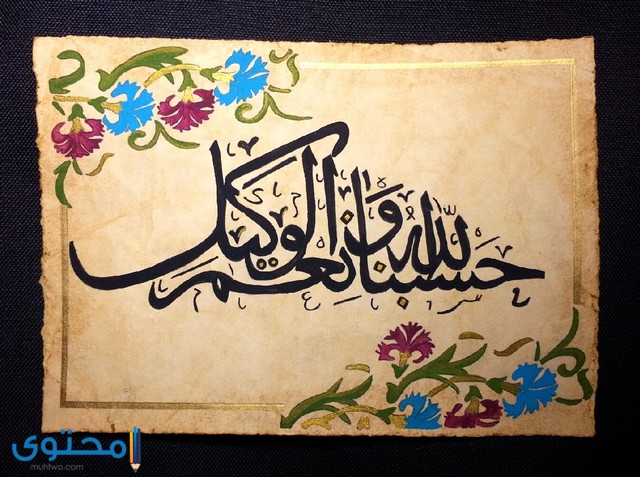 حسبنا الله ونعم الوكيل
محتوى
muhtwa.com